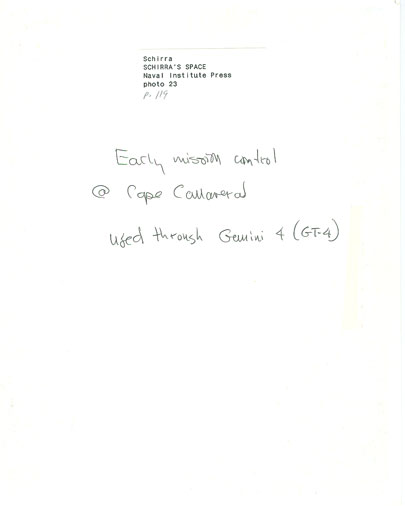 Schirra
SCHIRRA'S SPACE
Naval Institute Press
photo 23
p. 119
Early mission control
@ Cape Canaveral
used through Gemini 4 (GT-4)